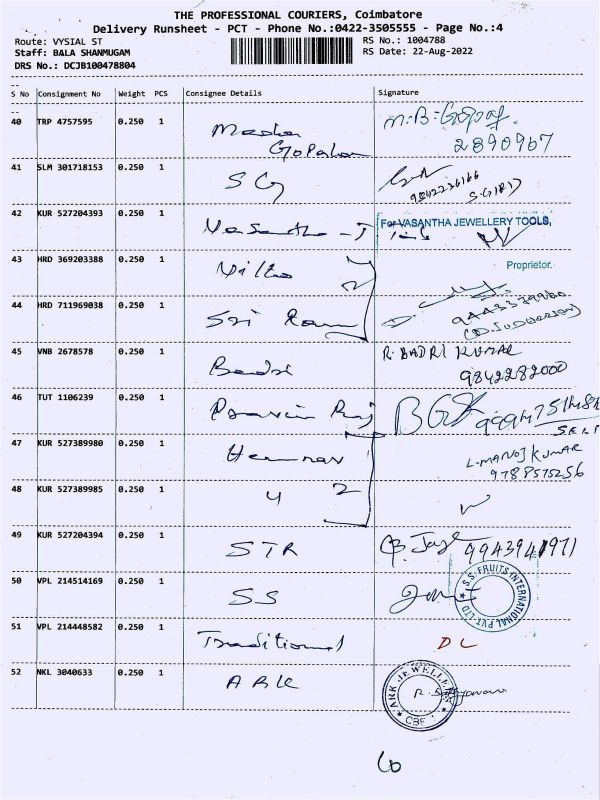 THE PROFESSIONAL COURIERS, Coimbatore
Delivery Runsheet - PCT - Phone No.:0422-3505555 - Page No.:4
Route: VYSIAL ST
RS No.: 1004788
Staff: BALA SHANMUGAM
RS Date: 22-Aug-2022
DRS No.: DCJB100478804
S No Consignment No Weight PCS Consignee Details Signature
40 TRP 4757595 0.250 1 Madha M.B.Gopal
Gopalan 2890967
41 SLM 301718153 0.250 1 SG
9842236166
42 KUR 527204393 0.250 1 Vasantha - J For VASANTHA JEWELLERY TOOLS,
Proprietor.
43 HRD 369203388 0.250 1
2
44 HRD 711969038 0.250 1 Sri Ram
45 VNB 2678578 0.250 1 Badri R. BADRI KUMAR
9842282000
46 TUT 1106239 0.250 1 Pravin Raj
SELF
47 KUR 527389980 0.250 1 L. MANOJ KUMAR
9788575256
48 KUR 527389985 0.250 1 4 2
49 KUR 527204394 0.250 1 STR 9943941971
50 VPL 214514169 0.250 1 SS S.S. FRUITS INTERNATIONAL PVT-LTD
51 VPL 214448582 0.250 1 Traditional DL
52 NKL 3040633 0.250 1 ARK ARK JEWELLERS
CBE